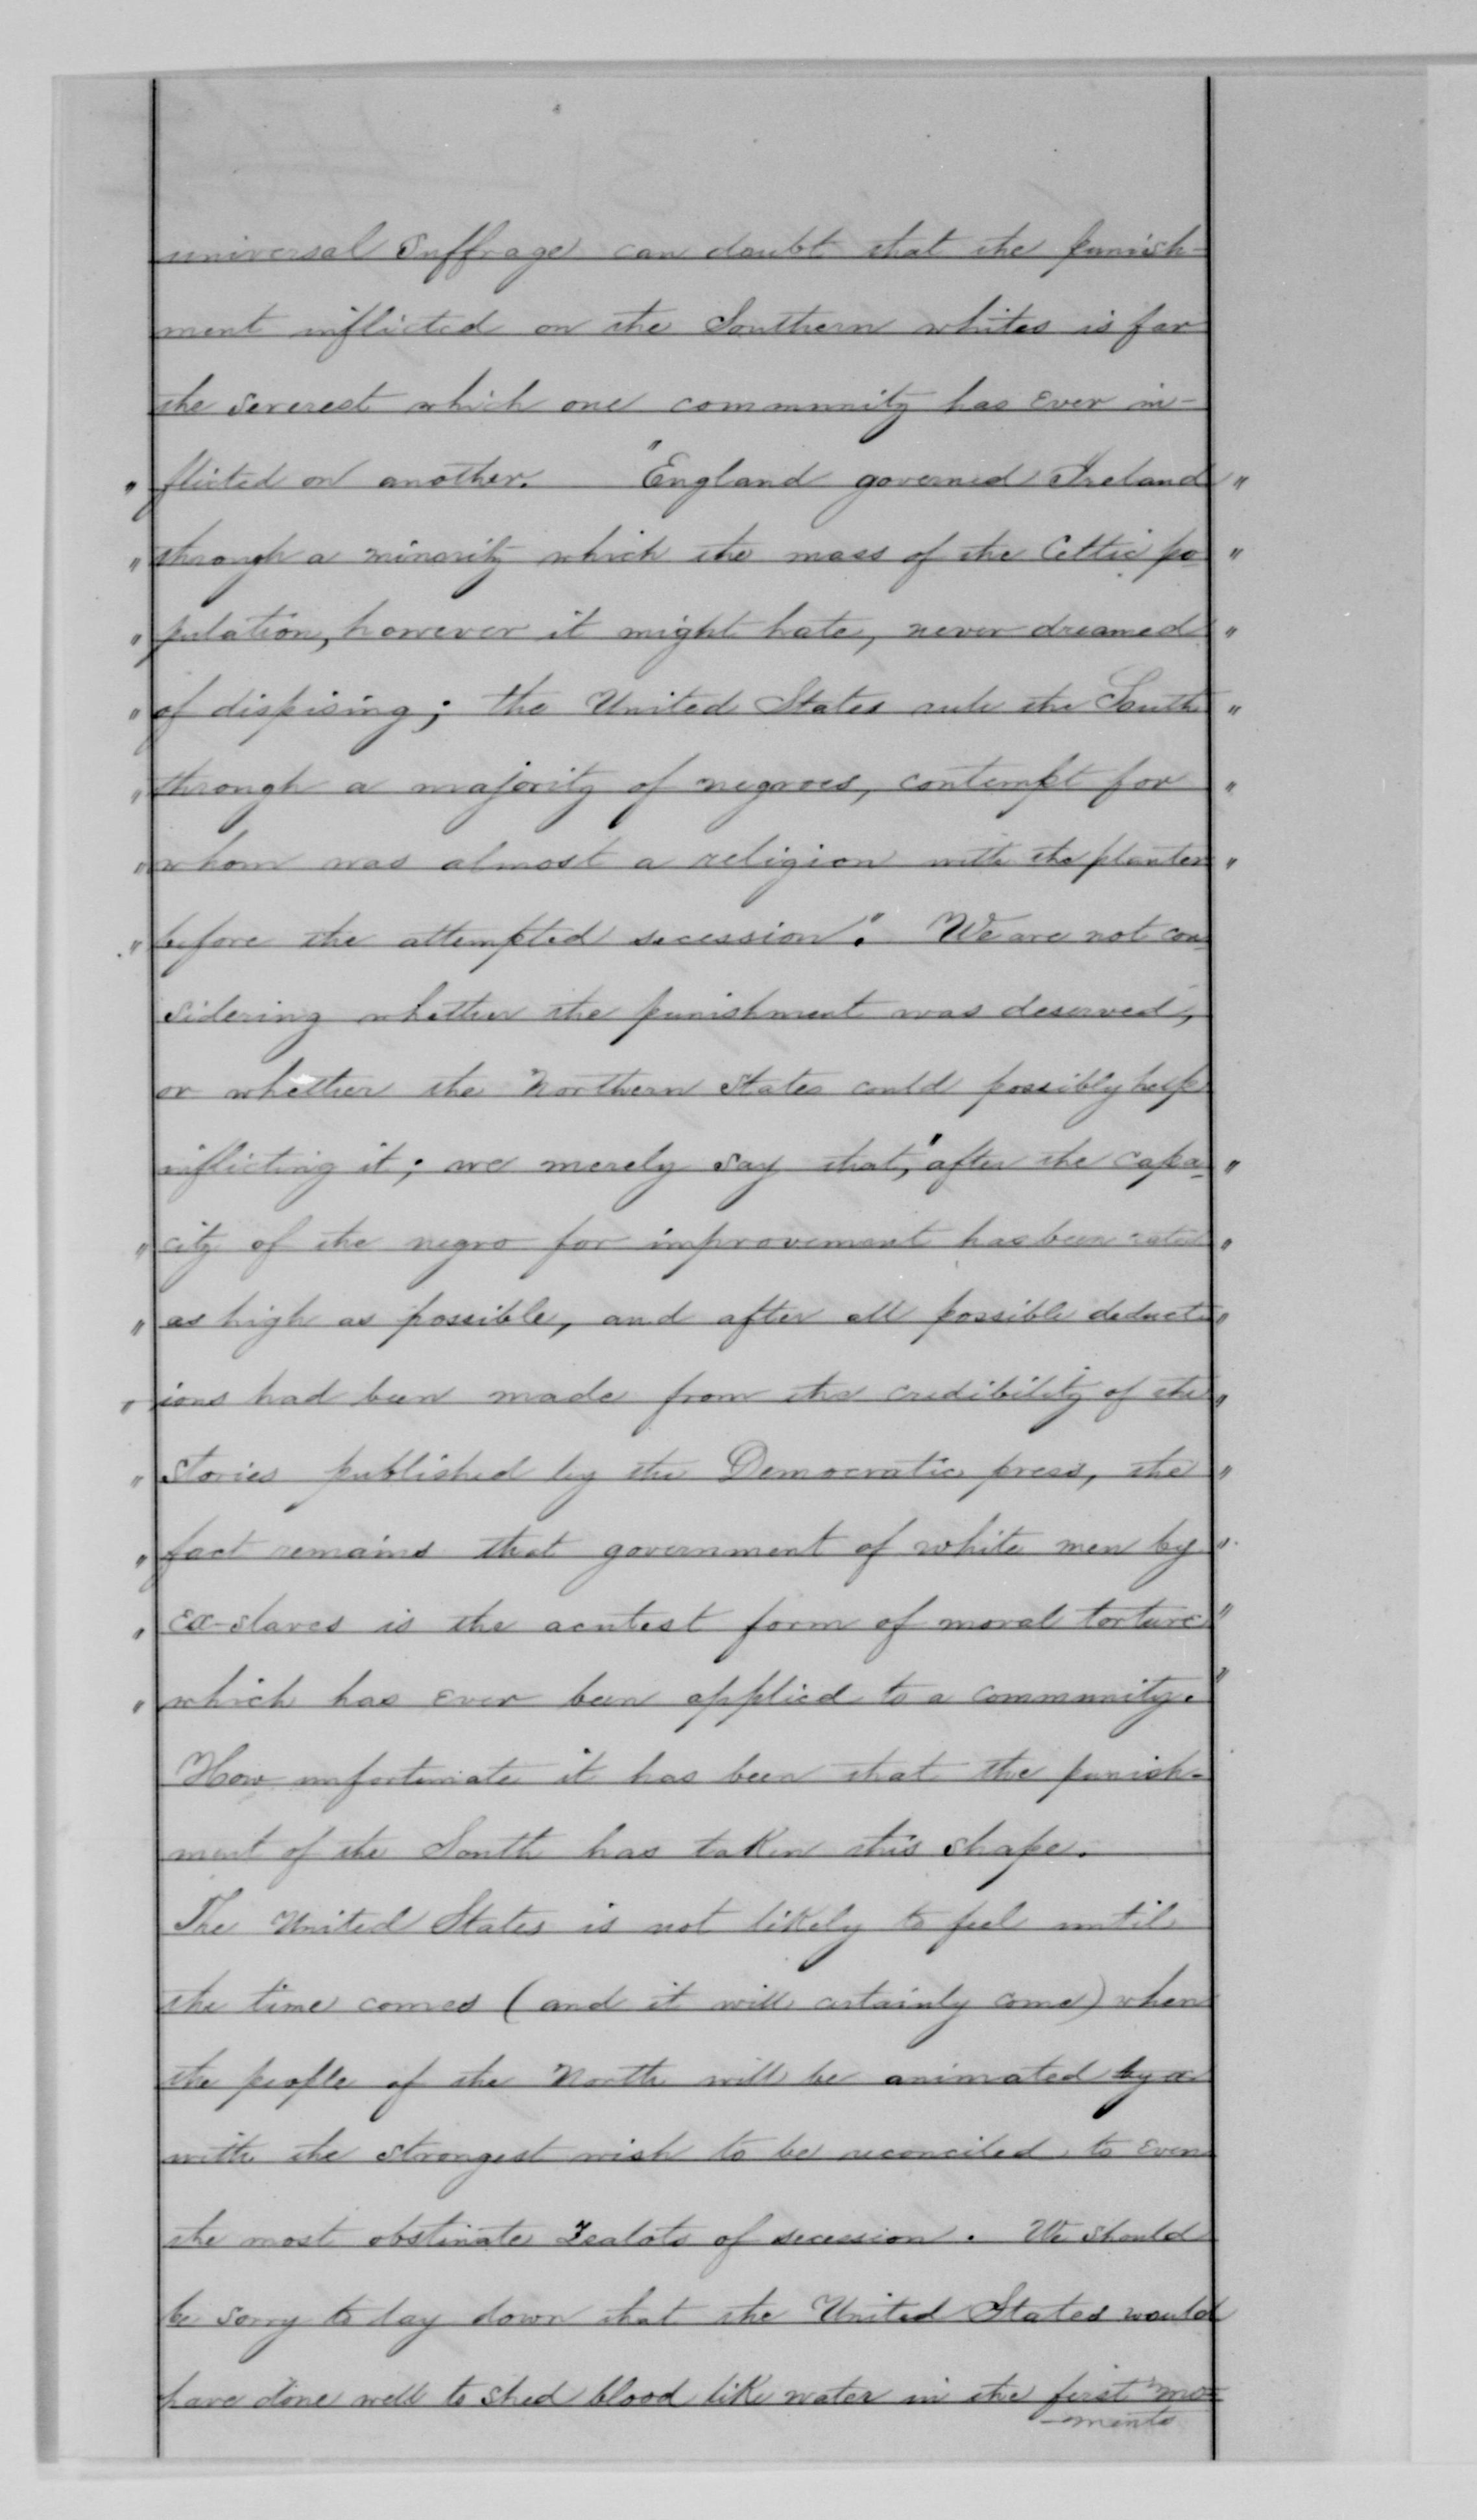 universal Suffrage can doubt that the punish-
ment inflicted on the Southern whites is far
the severest which one community has ever in-
" flicted on another. "England governed Ireland "
" through a minority which the mass of the Celtic po "
" pulation, however it might hate, never dreamed "
" of dispising; the United States rule the South "
" through a majority of negroes, contempt for "
" whom was almost a religion with the planters "
" before the attempted secession." We are not con-
sidering whether the punishment was deserved,
or whether the Northern States could possibly help
inflicting it; we merely say that, "after the capa- "
" city of the negro for improvement has been rated "
" as high as possible, and after all possible deduct- "
" ions had been made from the credibility of the "
" stories published by the Democratic press, the "
" fact remains that government of white men by "
" ex-slaves is the acutest form of moral torture "
" which has ever been applied to a community. "
How unfortunate it has been that the punish-
ment of the South has taken this shape.
The United States is not likely to feel until
the time comes (and it will certainly come) when
the people of the North will be animated by a
with the strongest wish to be reconciled to even
the most obstinate zealots of secession. We should
be sorry to lay down that the United States would
have done well to shed blood like water in the first mo-
-ments